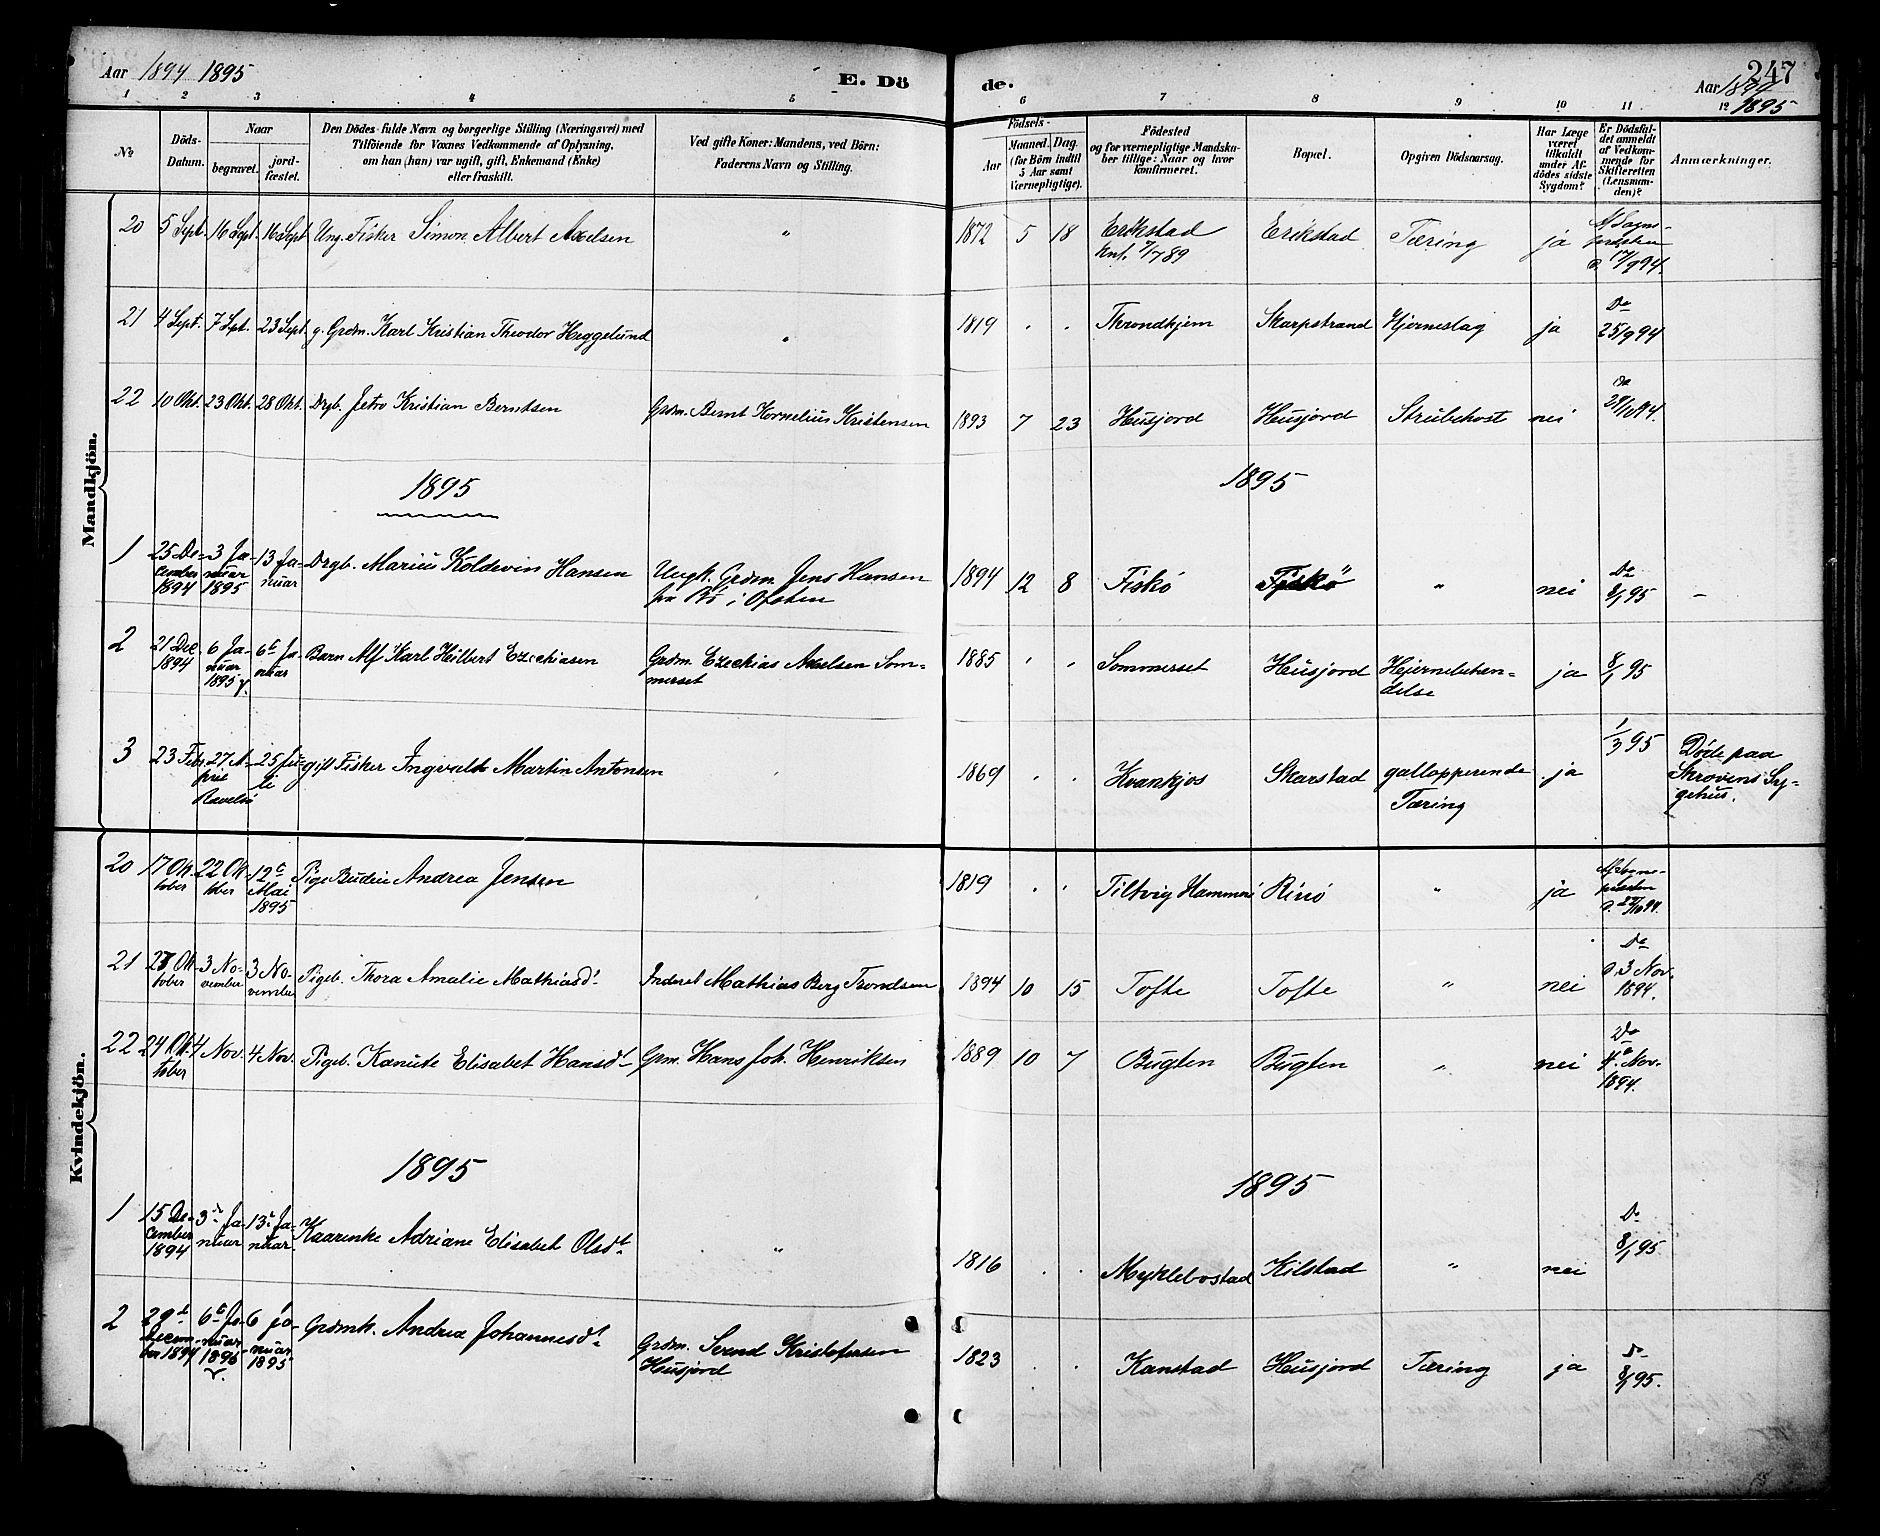 Aar 1894 1895
E. Dö
de.
247
Aar 1894
1895
1 2 3 4 5 6 7 8 9 10 11 12
No
Döds-Datum.
Naar
begravet.
jord-fæstet.
Den Dödes fulde Navn og borgerlige Stilling (Næringsvei) med
Tilföiende for Voxnes Vedkommende af Oplysning,
om han (hun) var ugift, gift, Enkemand (Enke)
eller fraskilt.
Ved gifte Koner: Mandens, ved Börn:
Faderens Navn og Stilling.
Födsels-
Aar
Maaned. Dag.
(for Börn indtil
5 Aar samt
Værnepligtige).
Födested
og for værnepligtige Mandska-
ber tillige: Naar og hvor
konfirmeret.
Bopæl.
Opgiven Dödsaarsag.
Har Læge
været
tilkaldt
under Af-
dödes sidste
Sygdom?
Er Dödsfal-
det anmeldt
af Vedkom-
mende for
Skifteretten
(Lensman-
den)?
Anmærkninger.
Mandkjön.
20 5 Sept. 16 Sept. 16 Sept Ung. Fisker Simon Albert Axelsen " 1872 5 18 Erikstad Erikstad Tæring ja
knf. 7/7 89
17/9 94
21 4 Sept. 7 Sept. 23 Sept. g. Grdm. Karl Kristian Theodor Heggelund " 1819 " " Throndhjem Skarpstrand Hjerneslag ja Do
25/9 94
22 10 Okt. 23 Okt. 28 Okt. Drgb. Jetro Kristian Berntsen Grdm. Bernt Kornelius Kristensen 1893 7 23 Husjord Husjord Strubehost nei Do
1895 1895
1 25 De-cember 1894 3 Ja-nuar 1895 13 Ja-nuar Drgb. Marius Koldevin Hansen Ungk. Grdm. Jens Hansen
fra Bö i Ofoten 1894 12 8 Fiskö Fiskö " nei Do
8/1 95
2 21 Dec 1894 6 Ja-nuar 1895 6te Ja-nuar Barn Alf Karl Hilbert Ezechiasen Grdm. Ezechias Axelsen Som-
merset 1885 " " Sommerset Husjord Hjernebetæn-
delse ja 8/1 95
3 23 Febr 27 A-pril 25 Ju-li gift Fisker Ingvald Martin Antonsen " 1869 " " Kvankjos Skarstad gallopperende
Tæring ja 1/3 95 Döde paa
Skrovens Sy-
gehus.
Kvindekjön.
20 17 Ok-tober 22 Ok-tober 12te Mai 1895 Pige Andrea Jensen 1819 " " Tiltvig Hammerö Rinö " ja
21 27 Ok-tober 3 No-vember 3 No-vember Pigeb. Thora Amalie Mathiasdt. Inderst Mathias Berg Trondsen 1894 10 15 Tofte Tofte " nei Do
d. 3 Nov.
1894.
22 24 Ok-tober 4 Nov. 4 Nov. Pigeb. Kanute Elisabet Hansdt. Grm. Hans Joh. Henriksen 1889 10 7 Bugten Bugten " nei Do
4. Nov.
1894.
1895 1895
1 15 De-cember 1894 3die Ja-nuar 13de Ja-nuar Kaarenke Adriane Elisabet Olsdt. " 1816 " " Myklebostad Kilstad " nei Do
8/1 95
2 29de Decem-ber 1894 6te Ja-nuar 1895 6 ja-nuar 1895 Grdmk. Andrea Johannesdt. Grdm. Svend Kristofersen
Husjord 1823 " " Kanstad Husjord Tæring ja Do
8/1 95.